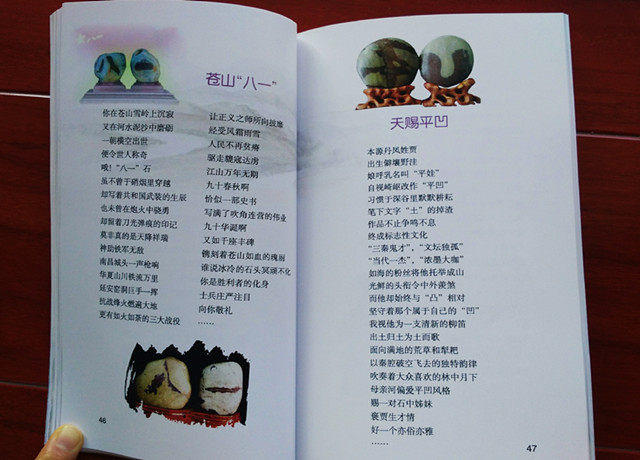 苍山“八一”
你在苍山雪岭上沉寂
又在河水泥沙中磨砺
一朝横空出世
便令世人称奇
哦！“八一”石
虽不曾于硝烟里穿越
却写着共和国武装的生辰
也未曾在炮火中骁勇
却留着刀光弹痕的印记
莫非真的是天降祥瑞
神助铁军无敌
南昌城头一声枪响
华夏山川铁流万里
延安窑洞巨手一挥
抗战烽火燃遍大地
更有如火如荼的三大战役
让正义之师所向披靡
经受风霜雨雪
人民不再贫瘠
驱走魑寇达虏
江山万年无期
九十春秋啊
恰似一部史书
写满了吹角连营的伟业
九十华诞啊
又如千座丰碑
镌刻着苍山如血的瑰丽
谁说冰冷的石头冥顽不化
你是胜利者的化身
士兵庄严注目
向你敬礼
……
46
天赐平凹
本源丹凤姓贾
出生僻壤野洼
娘呼乳名叫“平娃”
自视崎岖改作“平凹”
习惯于深谷里默默耕耘
笔下文字“土”的掉渣
作品不止争鸣不息
终成标志性文化
“三秦鬼才”，“文坛独孤”
“当代一杰”，“浓墨大咖”
如海的粉丝将他托举成山
光鲜的头衔令中外羡煞
而他却始终与“凸”相对
坚守着那个属于自己的“凹”
我视他为一支清新的柳笛
出土归土为土而歌
面向满地的荒草和犁耙
以秦腔破空飞去的独特韵律
吹奏着大众喜欢的林中月下
母亲河偏爱平凹风格
赐一对石中姊妹
褒贾生才情
好一个亦俗亦雅
……
47